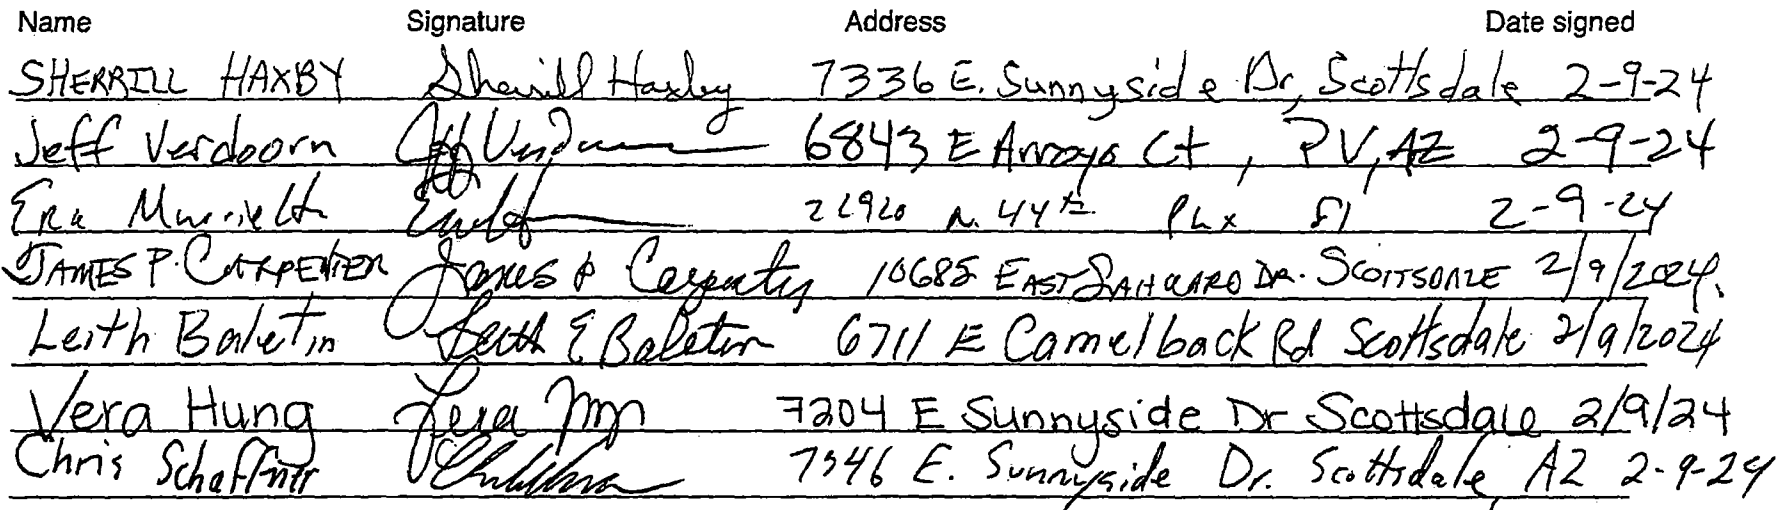 Name Signature Address Date signed
SHERRILL HAXBY Sherrill Haxby 7336 E. Sunnyside Dr, Scottsdale 2-9-24
Jeff Verdoorn Jeff Verdoorn 6843 E Arroyo Ct, PV, AZ 2-9-24
N. 44th Phx 2-9-24
JAMES P. CARPENTER James P Carpenter 10685 EAST DR. SCOTTSDALE 2/9/2024
Leith Baletin Leith E Baletin 6711 E Camelback Rd Scottsdale 2/9/2024
Vera Hung Vera 7204 E Sunnyside Dr Scottsdale 2/9/24
Chris Schaffner 7346 E. Sunnyside Dr. Scottsdale, AZ 2-9-24